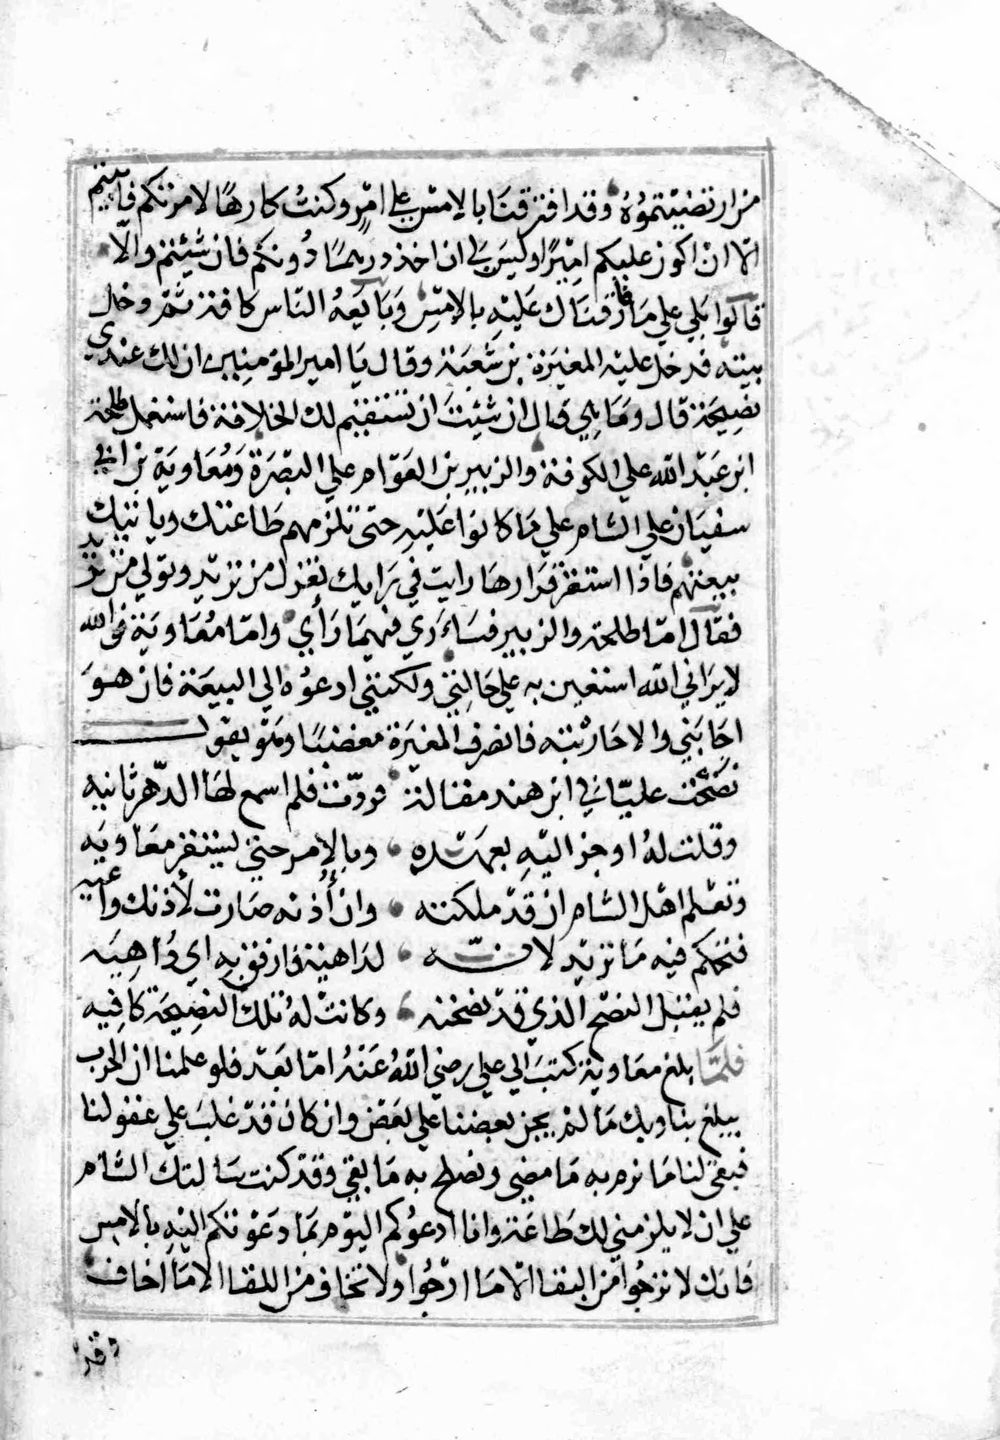 من ارتضيتموه وقد افترقنا بالامس علي امر وكنت كارها لامرتكم فابيتم
الا ان اكون عليكم اميرا وليس لي ان اخذ درهما دونكم فان شيتم والا
قالوا بلي علي ما فارقناك عليه بالامس وبايعه الناس كافة ثم دخل
بيته فدخل عليه المغيرة بن شعبة وقال يا امير المؤمنين ان لك عندي
نصيحة قال وما هي قال ان شيت ان تستقيم لك الخلافة فاستعمل طلحة
ابن عبد الله علي الكوفة والزبير بن العوام علي البصرة ومعاوية بن ابي
سفيان علي الشام علي ما كانوا عليه حتى تلزمهم طاعتك وياتيك
ببيعتهم فاذا استقر قرارها رايت في رايك بعزل من تريد وتولي من تريد
فقال اما طلحة والزبير فساءري فيهما رأي واما معاوية فوالله
لا يراني الله استعين به علي حالتي ولكنني ادعوه الي البيعة فان هو
اجابني والا حاربته فانصرف المغيرة مغضبا وهو يقول
نصحت عليا في ابن هند مقالة فردت فلم اسمع لها الدهر ثانيه
وقلت له اوجز اليه بعهده وبالامر حتى ليستقر معاويه
وتعلم اهل الشام ان قد ملكته وان أذنه صارت لأذنك واعيه
فتحكم فيه ما تريد لانه لداهية فارفق به اي داهيه
فلم يقبل النصح الذي قد نصحته وكانت له تلك النصيحة كافيه
فلما بلغ معاوية كتب الي علي رضي الله عنه اما بعد فلو علمنا ان الحرب
يبلغ بنا وبك ما لم يجز بعضنا علي بعض وان كان قد غلب علي عقولنا
فبقي لنا ما نرم به ما مضي ونصلح به ما بقي وقد كنت سالتك الشام
علي ان لا يلزمني لك طاعة وانا ادعوكم اليوم بما دعوتكم اليه بالامس
فانك لا ترجوا من البقا الا ما ارجوا ولا تخاف من اللقا الا ما اخاف
وقد